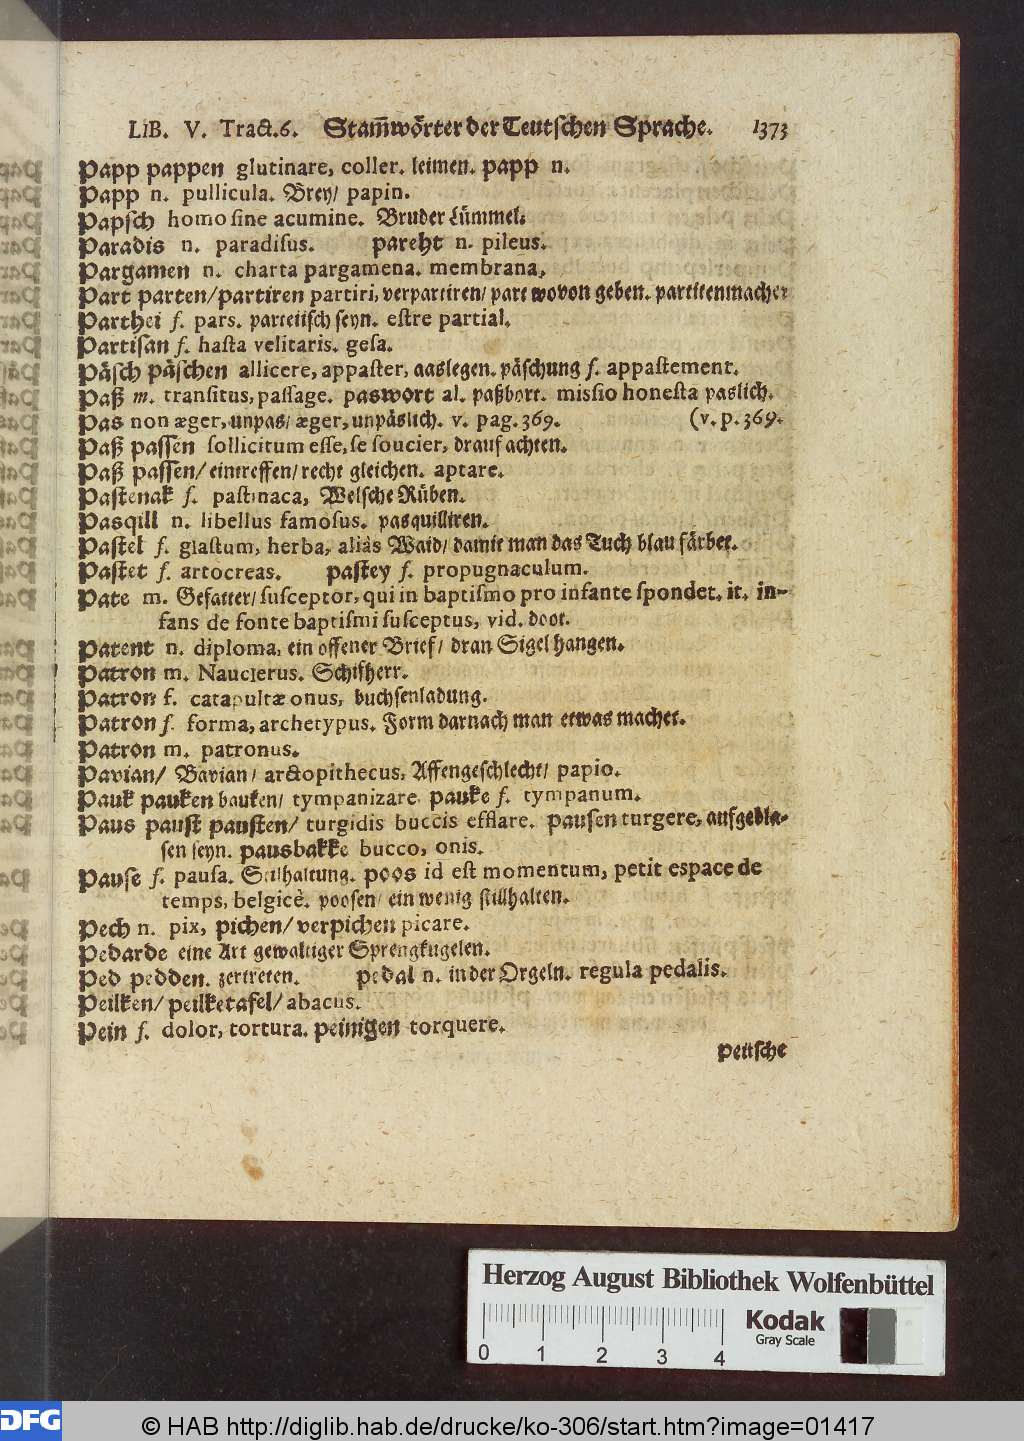 LIB. V. Tract. 6. Stam̃wörter der Teutschen Sprache. 1373
Papp pappen glutinare, coller. leimen. papp n.
Papp n. pullicula. Brey/ papin.
Papsch homo sine acumine. Bruder Lümmel.
Paradis n. paradisus. pareht n. pileus.
Pargamen n. charta pargamena. membrana.
Part parten/ partiren partiri, verpartiren/ part wovon geben. partitenmacher
Parthei f. pars. parteiisch seyn. estre partial.
Partisan f. hasta velitaris. gesa.
Päsch päschen allicere, appaster, aaslegen. päschung f. appastement.
Paß m. transitus, passage. paswort al. paßbort. missio honesta paslich.
Pas non æger, unpas/ æger, unpäslich. v. pag. 369. (v. p. 369.
Paß passen sollicitum esse, se soucier, drauf achten.
Paß passen/ eintreffen/ recht gleichen. aptare.
Pastenak f. pastinaca, Welsche Rüben.
Pasqill n. libellus famosus. pasquilliren.
Pastel f. glastum, herba, aliàs Waid/ damit man das Tuch blau färbet.
Pastet f. artocreas. pastey f. propugnaculum.
Pate m. Gefatter/ susceptor, qui in baptismo pro infante spondet. it. in-
fans de fonte baptismi susceptus, vid. doot.
Patent n. diploma, ein offener Brief/ dran Sigel hangen.
Patron m. Nauclerus. Schifherr.
Patron f. catapultæ onus, buchsenladung.
Patron f. forma, archetypus. Form darnach man etwas machet.
Patron m. patronus.
Pavian/ Bavian/ arctopithecus, Affengeschlecht/ papio.
Pauk pauken bauken/ tympanizare. pauke f. tympanum.
Paus paust pausten/ turgidis buccis efflare. pausen turgere, aufgebla-
sen seyn. pausbakke bucco, onis.
Pause f. pausa. Stillhaltung. poos id est momentum, petit espace de
temps, belgicè. poosen/ ein wenig stillhalten.
Pech n. pix, pichen/ verpichen picare.
Pedarde eine Art gewaltiger Sprengkugelen.
Ped pedden. zertreten. pedal n. in der Orgeln. regula pedalis.
Peilken/ peilketafel/ abacus.
Pein f. dolor, tortura. peinigen torquere.
peitsche
Herzog August Bibliothek Wolfenbüttel
0 1 2 3 4
Kodak
Gray Scale
DFG
© HAB http://diglib.hab.de/drucke/ko-306/start.htm?image=01417